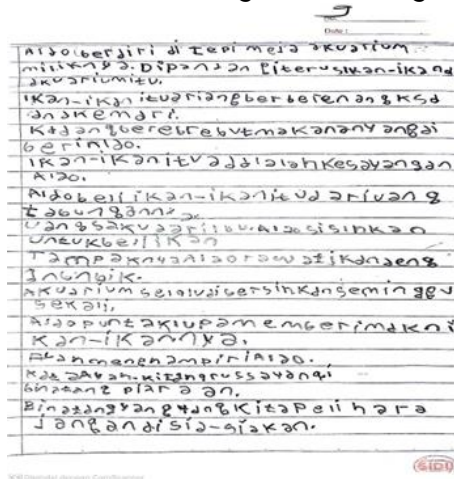 Date :
Aldo (berdiri di tepi meja akuarium
miliknya. Dipandangiterusikan-ikand
akuariumitu.
Ikan-ikanituariangberberenangksd
anakemari.
Kadangberebrebutmakananyangdi
beriAldo.
Ikan-ikanituaddlalahkesayangan
Aldo.
Aldobeliikan-ikanitudariuang
tabungannya
uangsakudariibu.Aldosisihkan
untukbeliikan
TampaknyaAldorawatikandeng
Akuariumselaludibersihkanseminggu
sekali,
Aldopuntaklupamemberimakni
Kan-ikannya.
menghampiriAldo.
KataAyah.
binatang
BinatangyangydngKitapelihara
Jangandisia-siakan.
SIDU